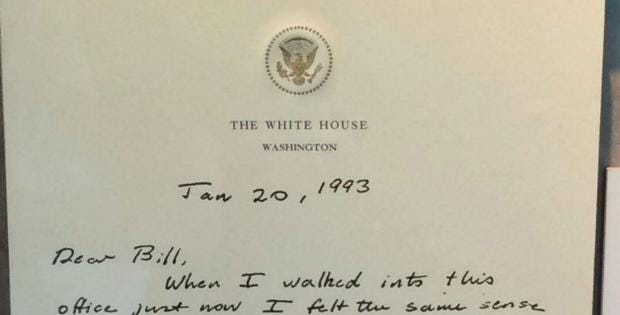 THE WHITE HOUSE
WASHINGTON
Jan 20, 1993
Dear Bill,
When I walked into this
office just now I felt the same sense